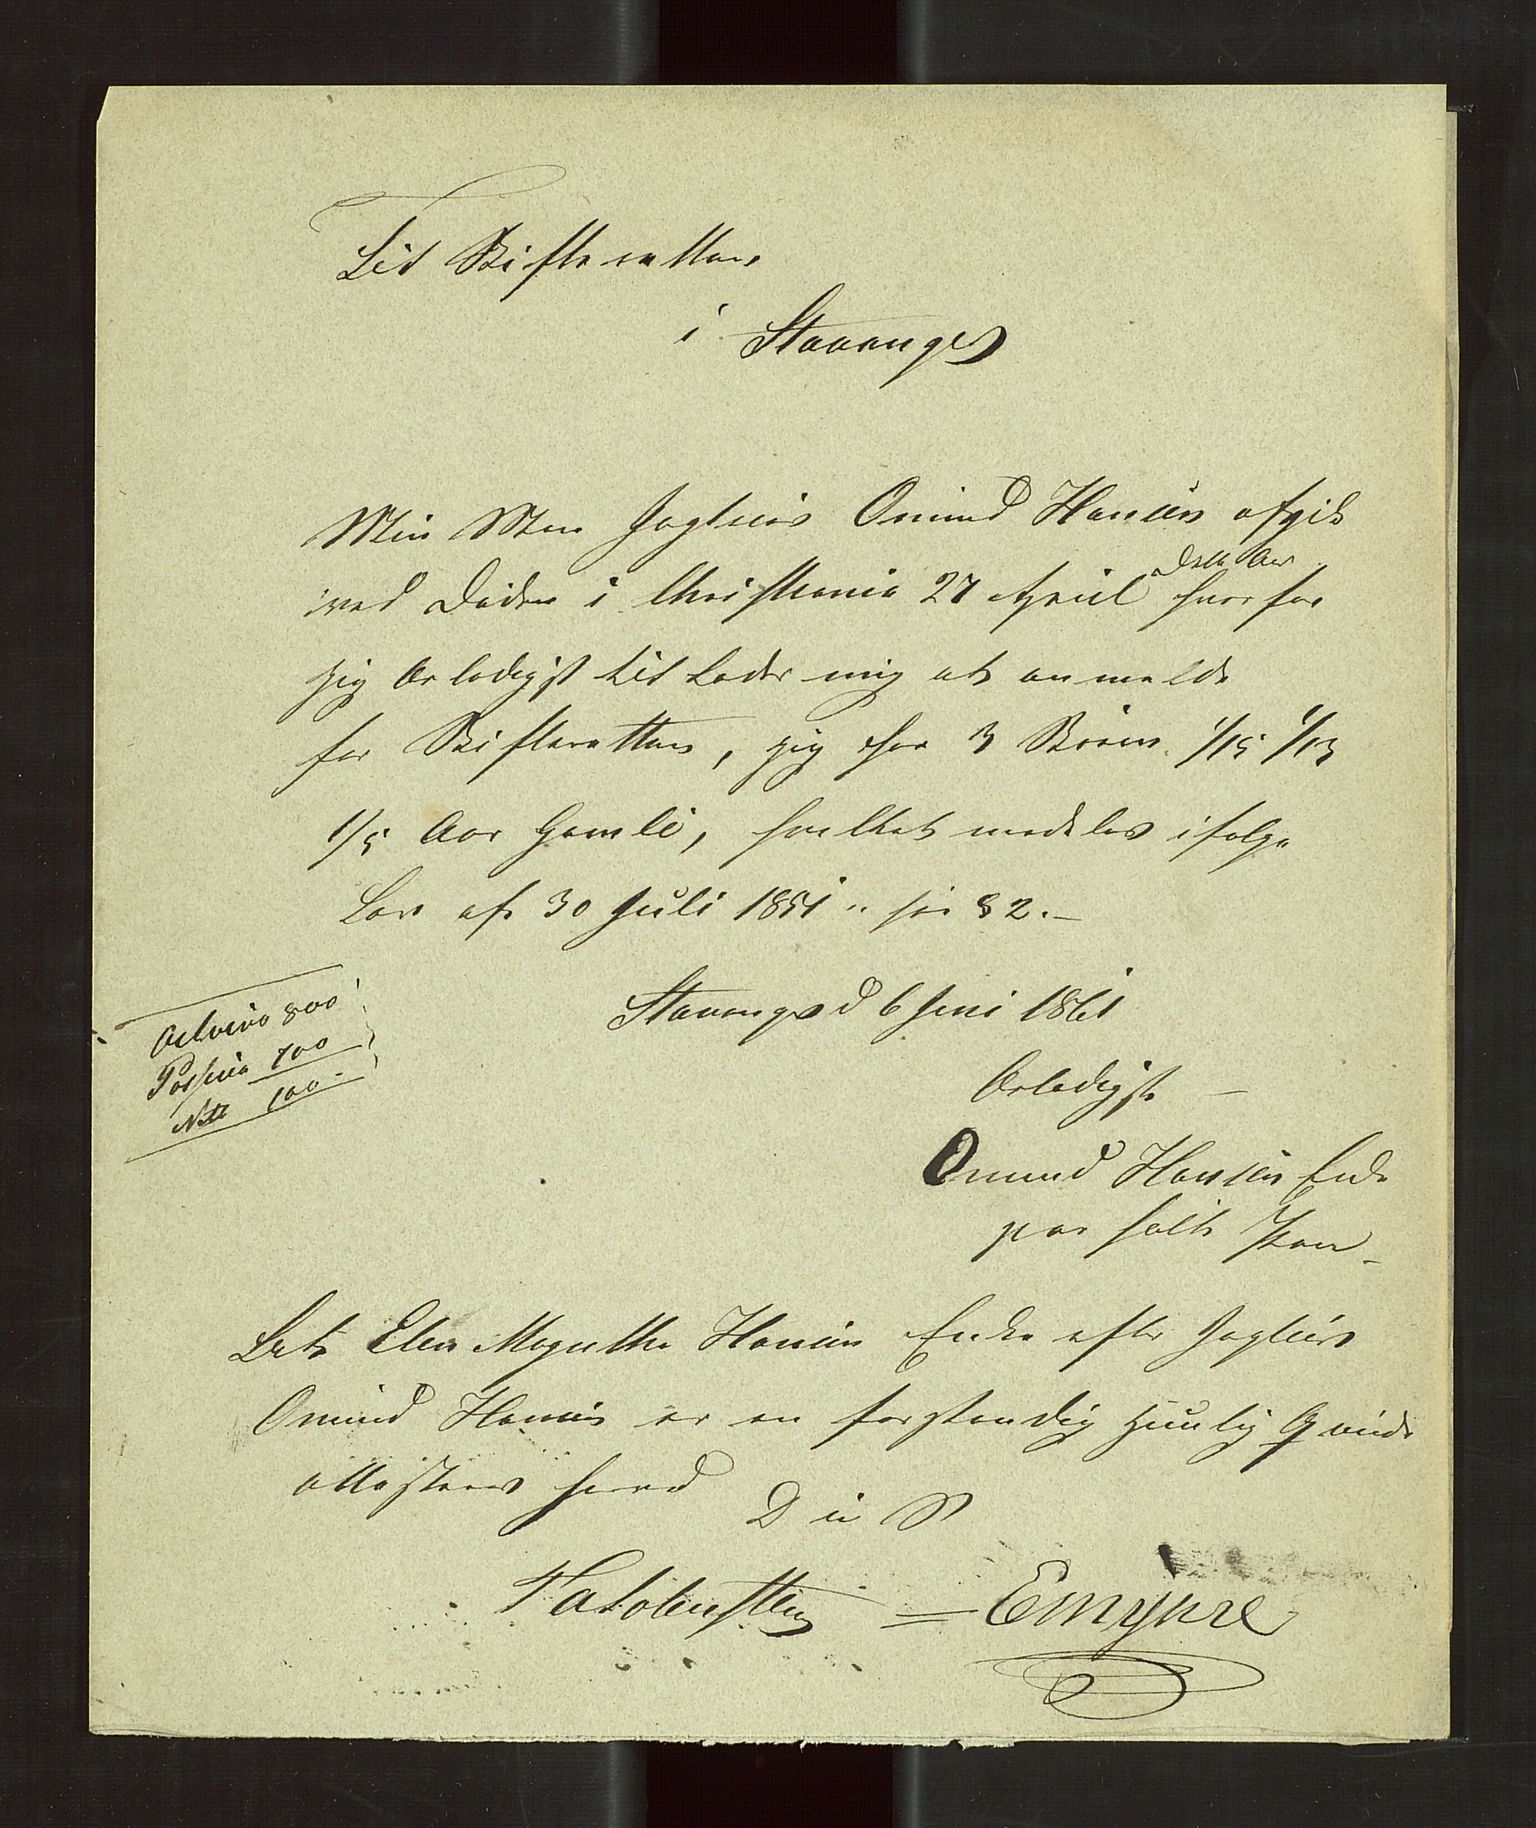 Til Skifteretten
i Stavanger
Min Man Jagtskis Omund Hansen afgik
ved Døden i Christiania 27 April dette Aar hvorfor
jeg ærbødigst tillader mig at anmelde
for Skifteretten, jeg har 3 Børn 1/15 1/13
1/5 Aar Gamle, hvilket meddeles ifølge
Lov af 30 Juli 1851 § 82.
Stavanger d 6 Juni 1861
Ærbødigst
Omund Hansen Enke
paaholt Pen
Activa 800
Passiva 700
Netto 100
At Elen Magrethe Hansen Enke efter
Omund Hansen er en forstandig huuslig Qvinde
attesteres herved
D u S
Emyhre